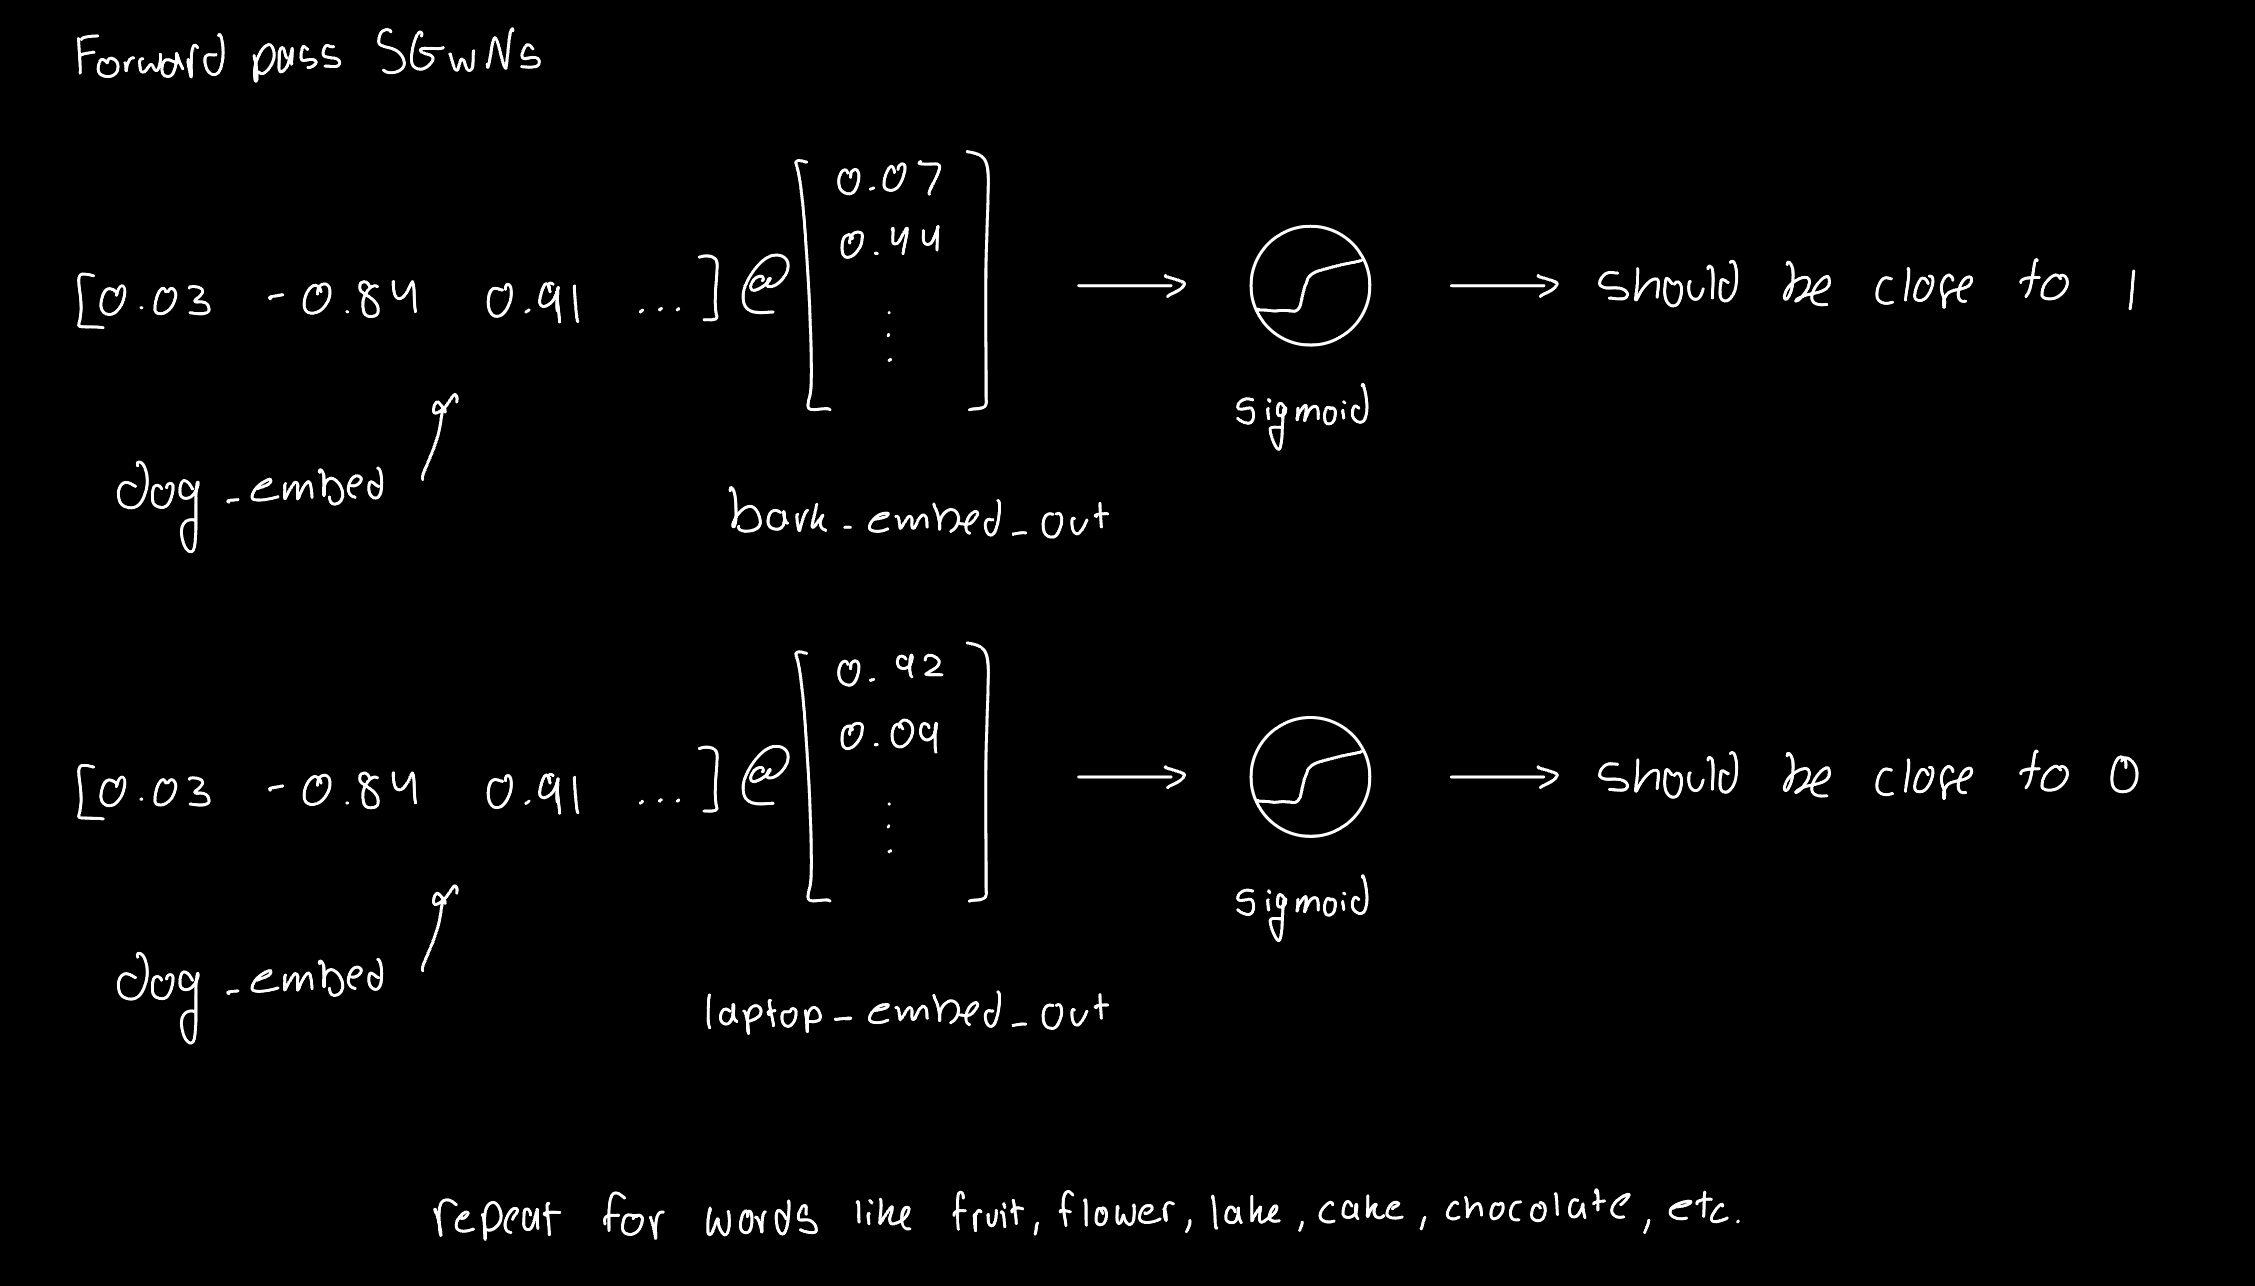 Forward pass SGwNs
[0.03 -0.84 0.91 ...] @ [0.07 0.44 ⋮] → → should be close to 1
sigmoid
dog_embed
bark_embed_out
[0.03 -0.84 0.91 ...] @ [0.92 0.09 ⋮] → → should be close to 0
sigmoid
dog_embed
laptop_embed_out
repeat for words like fruit, flower, lake, cake, chocolate, etc.